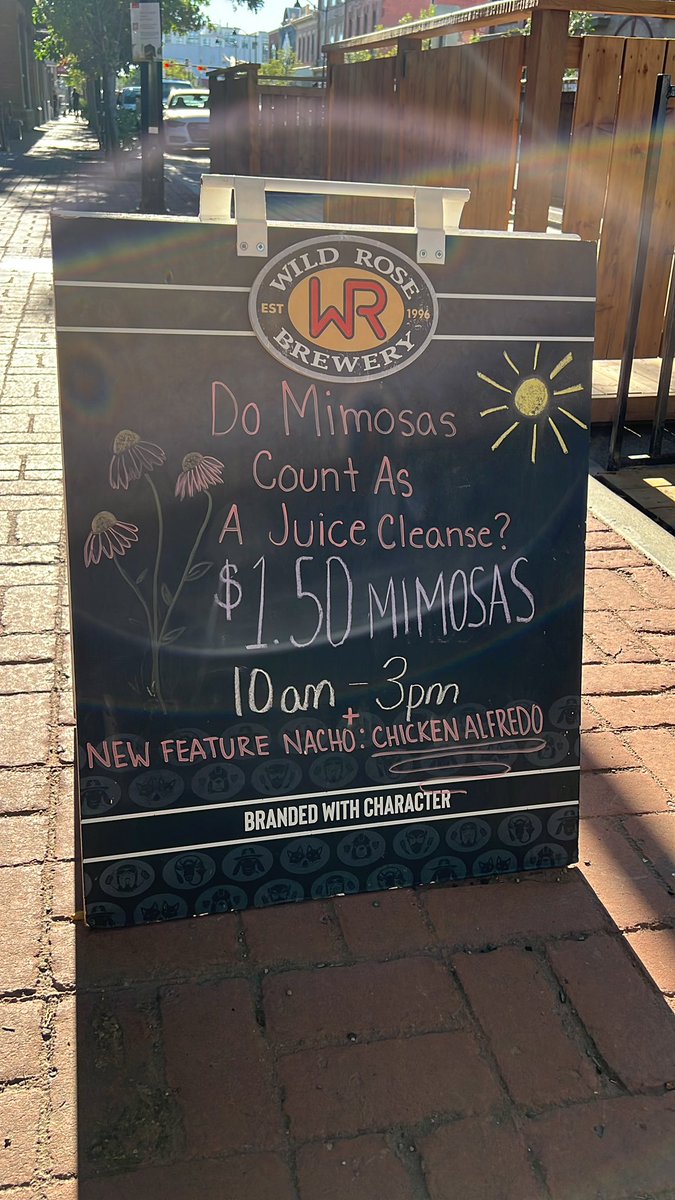 WILD ROSE
EST
WR
1996
BREWERY
Do Mimosas
Count As
A Juice Cleanse?
$1.50 MIMOSAS
10am - 3pm
+
NEW FEATURE NACHO: CHICKEN ALFREDO
BRANDED WITH CHARACTER